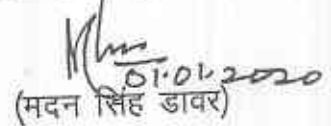 01.01.2020
(मदन सिंह डावर)